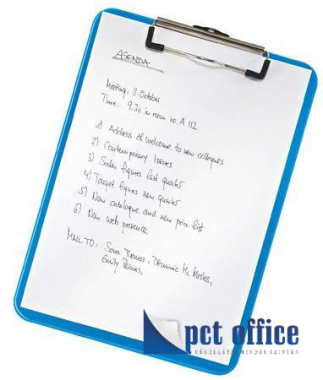 AGENDA
Meeting, 11. October
Time: 9.30 in room no. A 112
1) Address of welcome to new colleagues
2) Contemporary issues
3) Sales figures last quarter
4) Target figures new quarter
5) New catalogue and new price list
6) New web presence
MAIL TO: Sara Thomas, Dominic
Emily
pct office